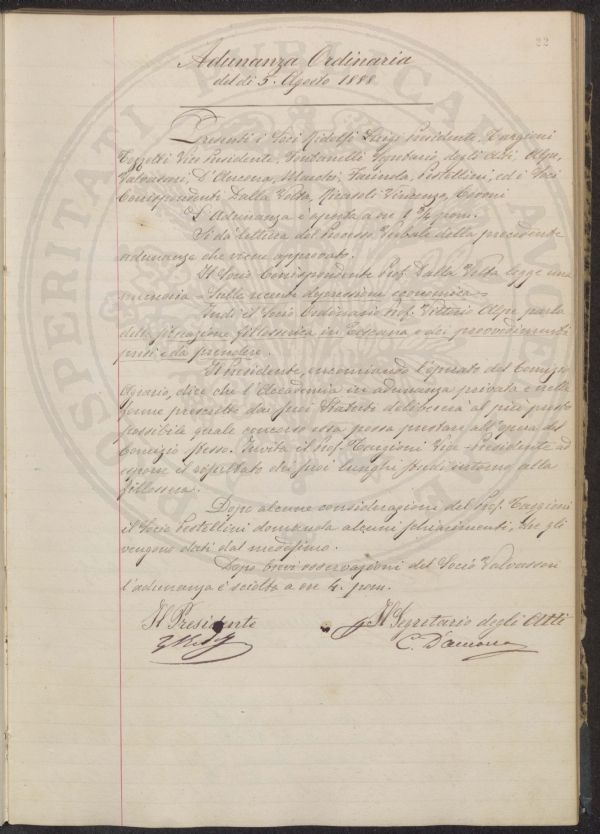 22
Adunanza Ordinaria
del dì 5. Agosto 1888
Presenti i Soci Ridolfi Luigi Presidente, Targioni
Tozzetti Vice Presidente, Fontanelli Segretario degli Atti, Alpe,
Valvassori, D'Ancona, Marchi, Farinola, Pestellini, ed i Soci
Corrispondenti Dalla Volta, Ricasoli Vincenzo, Caroni
L'Adunanza è aperta a ore 1 3/4 pom.
Si dà lettura del Processo Verbale della precedente
adunanza che viene approvato.
Il Socio Corrispondente Prof. Dalla Volta legge una
memoria "Sulla recente depressione economica"
Indi il Socio Ordinario Prof. Vittorio Alpe parla
della situazione fillosserica in Toscana e dei provvedimenti
presi e da prendere.
Il Presidente, encomiando l'operato del Comizio
Agrario, dice che l'Accademia in adunanza privata e nelle
forme prescritte dai suoi Statuti delibererà al più presto
possibile quale concorso essa possa prestare all'opera del
Comizio stesso. Invita il Prof. Targioni Vice-Presidente ad
esporre il risultato dei suoi lunghi studi intorno alla
fillossera.
Dopo alcune considerazioni del Prof. Targioni
il Socio Pestellini domanda alcuni schiarimenti, che gli
vengono dati dal medesimo.
Dopo brevi osservazioni del Socio Valvassori
l'adunanza è sciolta a ore 4. pom.
Il Presidente
Il Segretario degli Atti
C. D'Ancona
PROSPERITATI PUBLICAE AUGENDAE